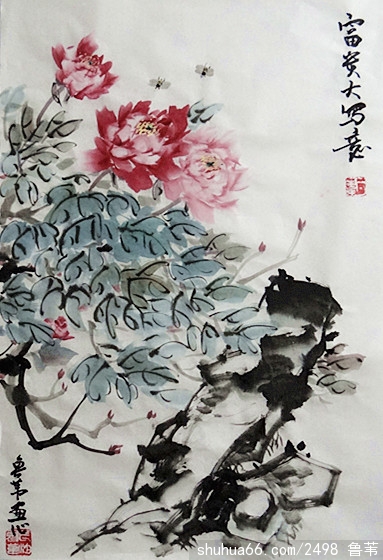 富贵大写意
鲁苇画
shuhua66.com/2498 鲁苇